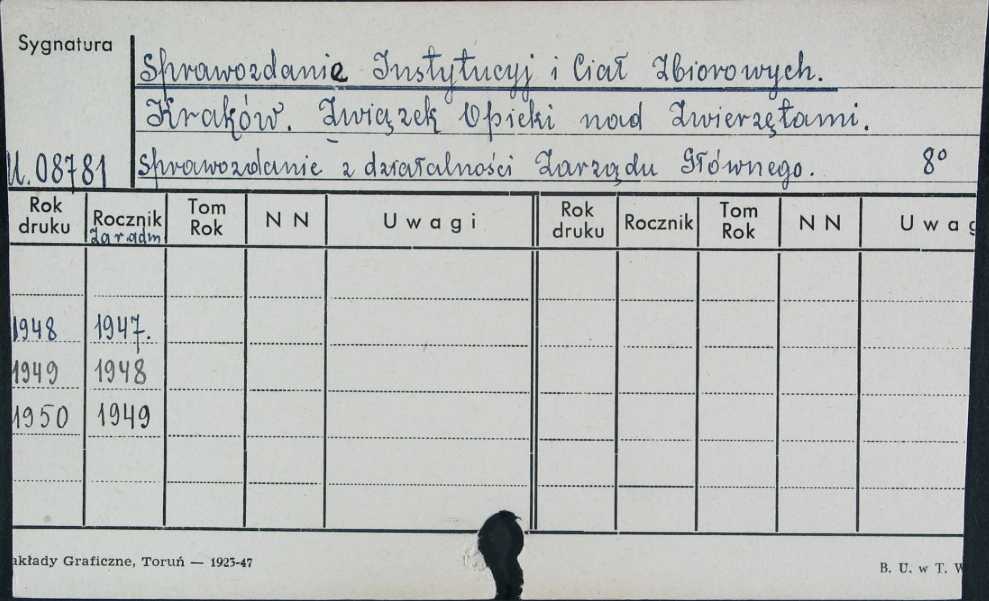 Sygnatura
Sprawozdanie Instytucyj i Ciał Zbiorowych.
Kraków. Związek Opieki nad Zwierzętami.
U. 08781 Sprawozdanie z działalności Zarządu Głównego. 8°
Rok druku Rocznik Za r. adm. Tom Rok N N Uwagi Rok druku Rocznik Tom Rok N N Uwag
1948 1947.
1949 1948
1950 1949
akłady Graficzne, Toruń — 1923-47 B. U. w T. W